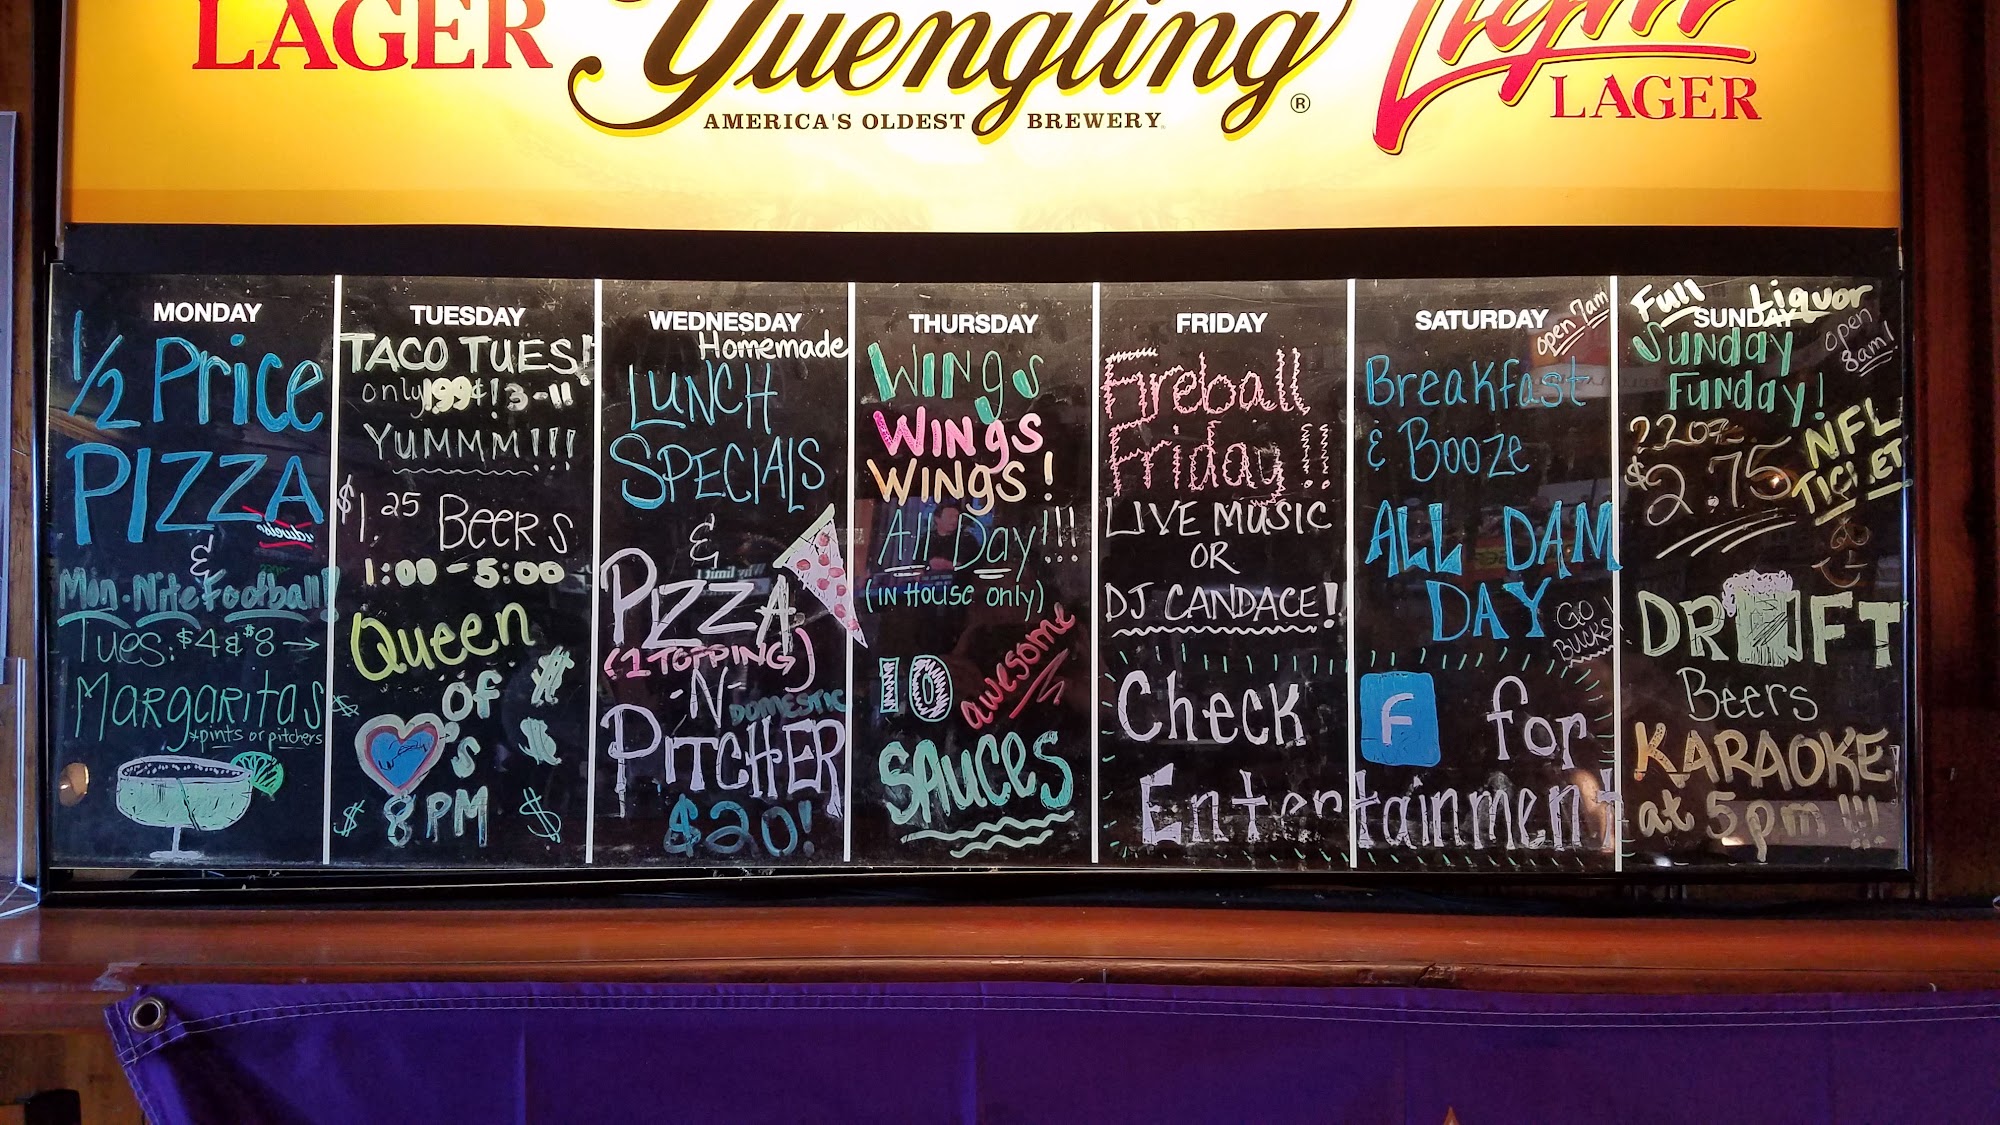 LAGER
Yuengling®
AMERICA'S OLDEST BREWERY
Light
LAGER
MONDAY
1/2 Price
PIZZA
&
Mon-Nite Football!
Tues: $4 & $8 →
MARGARITAS
*pints or pitchers
TUESDAY
TACO TUES!
only 199¢! 3-11
YUMMM!!!
$1.25 BEERS
1:00-5:00
Queen
OF $
's $
$ 8PM $
WEDNESDAY
Homemade
LUNCH
SPECIALS
&
PIZZA
(1 TOPPING)
-N- DOMESTIC
PITCHER
$20!
THURSDAY
WINgS
WINgS
WINgS!
All Day!!!
(IN House only)
10 awesome
SAUCES
FRIDAY
Fireball
Friday!!!
LIVE MUSIC
OR
DJ CANDACE!
Check f for
Entertainment
SATURDAY
open 7am
Breakfast
& Booze
ALL DAM
DAY
GO
BUCKS!
Full Liquor
SUNDAY
Sunday
Funday!
open
8am!
$2.75
NFL
TICKET
DRAFT
Beers
KARAOKE
at 5pm!!!